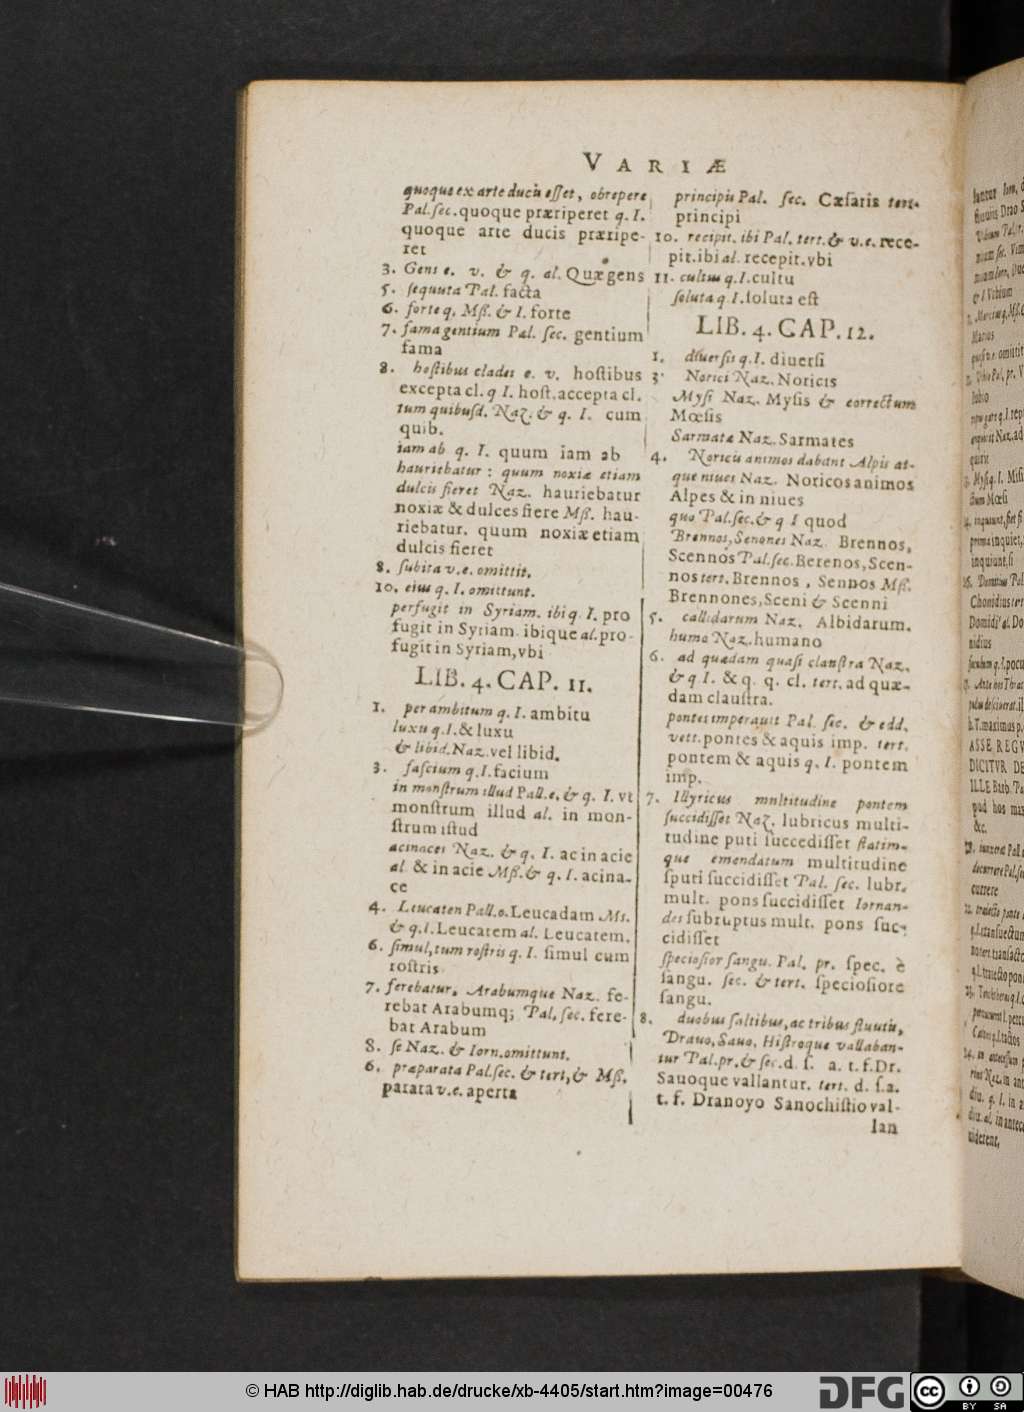 VARIÆ
quoque ex arte ducis esset, obrepere
Pal. sec. quoque præriperet q. I.
quoque arte ducis præripe-
ret
3. Gens e. v. & q. al. Quæ gens
5. sequuta Pal. facta
6. forte q. Mß. & I. forte
7. fama gentium Pal. sec. gentium
fama
8. hostibus clades e. v. hostibus
excepta cl. q I. host. accepta cl.
tum quibusd. Naz. & q. I. cum
quib.
iam ab q. I. quum iam ab
hauriebatur: quum noxiæ etiam
dulcis fieret Naz. hauriebatur
noxiæ & dulces fiere Mß. hau-
riebatur. quum noxiæ etiam
dulcis fieret
8. subita v.e. omittit.
10. eius q. I. omittunt.
perfugit in Syriam. ibi q. I. pro
fugit in Syriam. ibique al. pro-
fugit in Syriam, vbi
LIB. 4. CAP. 11.
1. per ambitum q. I. ambitu
luxu q. I. & luxu
& libid. Naz. vel libid.
3. fascium q. I. facium
in monstrum illud Pall. e. & q. I. vt
monstrum illud al. in mon-
strum istud
acinaces Naz. & q. I. ac in acie
al & in acie Mß. & q. I. acina-
ce
4. Leucaten Pall. o. Leucadam Ms.
& q. I. Leucatem al. Leucatem.
6. simul, tum rostris q. I. simul cum
rostris
7. ferebatur, Arabumque Naz. fe-
rebat Arabumq; Pal. sec. fere-
bat Arabum
8. se Naz. & Iorn. omittunt.
6. præparata Pal. sec. & tert, & Mß.
parata v.e. aperta
principis Pal. sec. Cæsaris tert.
principi
10. recipit. ibi Pal. tert. & v.e. rece-
pit. ibi al. recepit. vbi
11. cultus q. I. cultu
soluta q. I. soluta est
LIB. 4. CAP. 12.
1. diversis q. I. diuersi
3. Norici Naz. Noricis
Mysi Naz. Mysis & correctum
Mœsis
Sarmatæ Naz. Sarmates
4. Noricis animos dabant Alpis at-
que niues Naz. Noricos animos
Alpes & in niues
quo Pal. sec. & q I quod
Brennos, Senones Naz. Brennos,
Scennos Pal. sec. Berenos, Scen-
nos tert. Brennos, Sennos Mß.
Brennones, Sceni & Scenni
5. callidarum Naz. Albidarum.
humo Naz. humano
6. ad quædam quasi claustra Naz.
& q I. & q. q. cl. tert. ad quæ-
dam claustra.
pontes imperauit Pal. sec. & edd.
vett. pontes & aquis imp. tert.
pontem & aquis q. I. pontem
imp.
7. Illyricus multitudine pontem
succidisset Naz. lubricus multi-
tudine puti succedisset statim-
que emendatum multitudine
sputi succidisset Pal. sec. lubr.
mult. pons succidisset Iornan-
des subruptus mult. pons suc-
cidisset
speciosior sangu. Pal. pr. spec. è
sangu. sec. & tert. speciosiore
sangu.
8. duobus saltibus, ac tribus fluuiis,
Drauo, Sauo, Histroque vallaban-
tur Pal. pr. & sec. d. s. a. t. f. Dr.
Sauoque vallantur. tert. d. s. a.
t. f. Dranoyo Sanochistio val-
lan
© HAB http://diglib.hab.de/drucke/xb-4405/start.htm?image=00476
DFG
CC BY SA